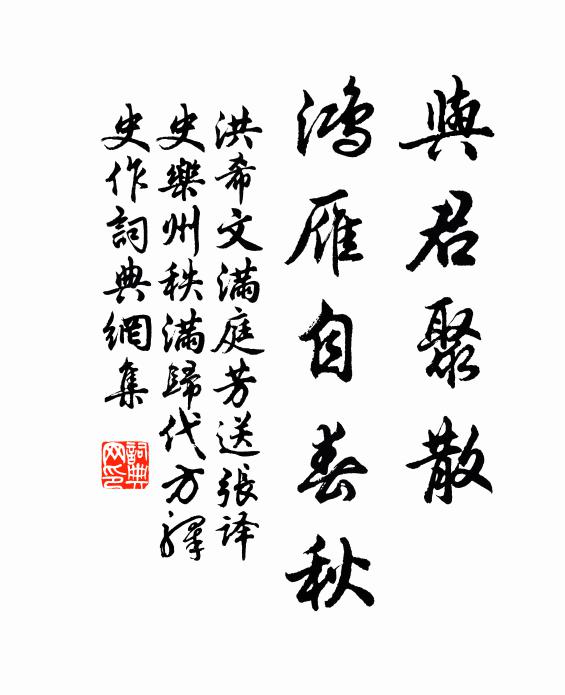 與君聚散
鴻雁自春秋
洪希文滿庭芳送張译
史樂州秩滿歸代方驛
史作詞典網集
詞典
网印